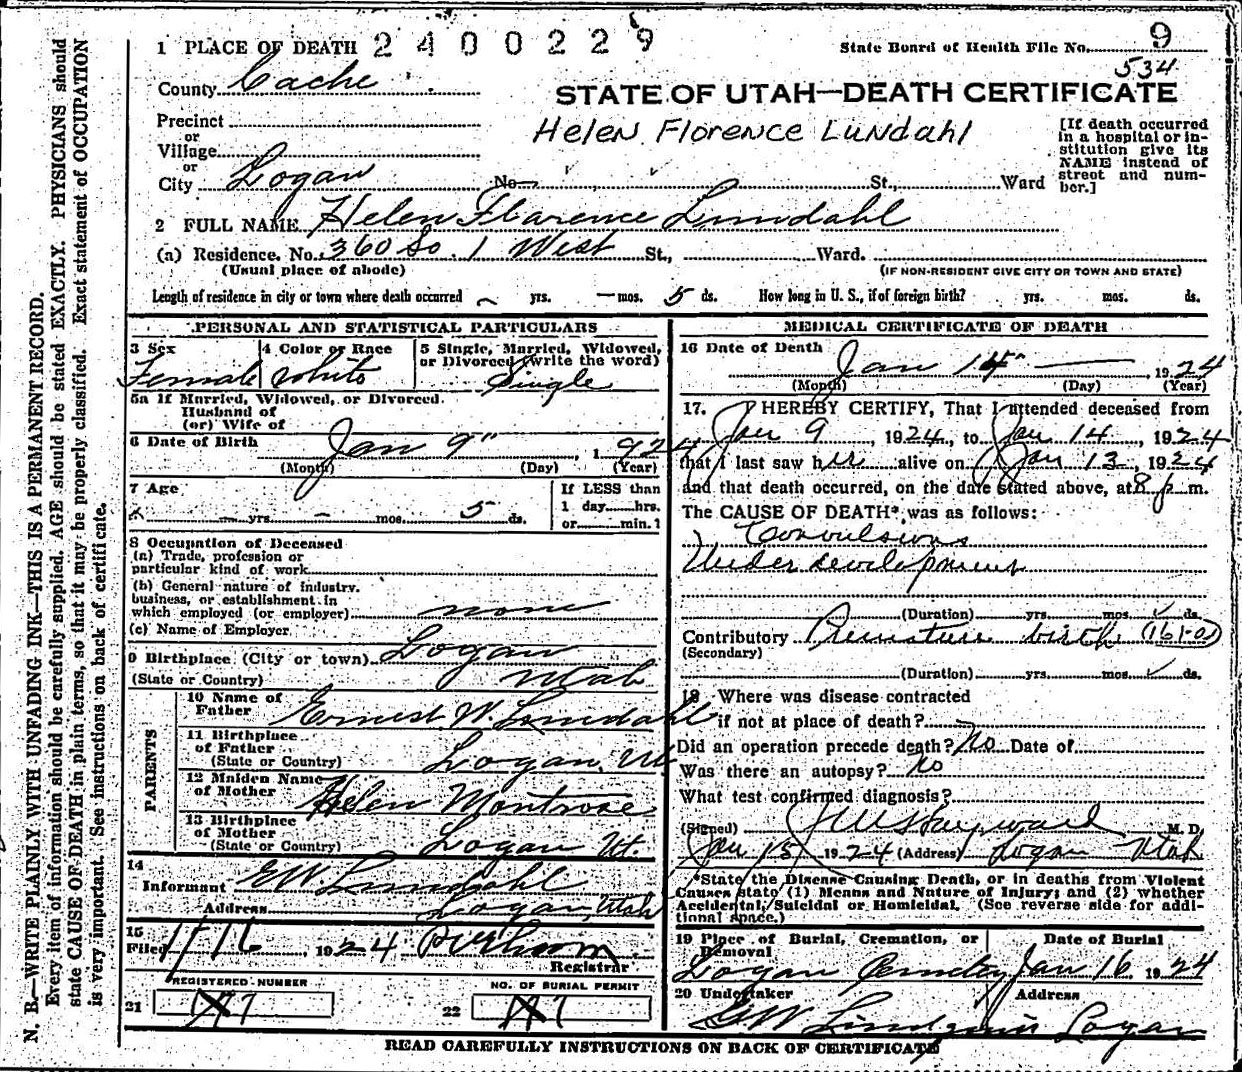 1 PLACE OF DEATH 2400229
State Board of Health File No. 9
534
County Cache
STATE OF UTAH—DEATH CERTIFICATE
Helen Florence Lundahl
Precinct
or
Village
or
City Logan No. St., Ward
[If death occurred
in a hospital or in-
stitution give its
NAME instead of
street and num-
ber.]
2 FULL NAME Helen Florence Lundahl
(a) Residence. No. 360 So. 1 West St., Ward.
(Usual place of abode) (IF NON-RESIDENT GIVE CITY OR TOWN AND STATE)
Length of residence in city or town where death occurred – yrs. – mos. 5 ds. How long in U. S., if of foreign birth? yrs. mos. ds.
PERSONAL AND STATISTICAL PARTICULARS
3 Sex
Female
4 Color or Race
White
5 Single, Married, Widowed,
or Divorced (write the word)
Single
5a If Married, Widowed, or Divorced.
Husband of
(or) Wife of
6 Date of Birth Jan 9", 1924
(Month) (Day) (Year)
7 Age
– yrs. – mos. 5 ds.
If LESS than
1 day hrs.
or min.?
8 Occupation of Deceased
(a) Trade, profession or
particular kind of work
(b) General nature of industry,
business, or establishment in
which employed (or employer) none
(c) Name of Employer
9 Birthplace (City or town) Logan
(State or Country) Utah
PARENTS
10 Name of
Father Ernest W. Lundahl
11 Birthplace
of Father
(State or Country) Logan, Ut.
12 Maiden Name
of Mother Helen Montrose
13 Birthplace
of Mother
(State or Country) Logan Ut.
14
Informant E W Lundahl
Address Logan, Utah
15
Filed 1/16, 1924
Registrar
REGISTERED NUMBER
21
NO. OF BURIAL PERMIT
22
MEDICAL CERTIFICATE OF DEATH
16 Date of Death Jan 14" 1924
(Month) (Day) (Year)
17. I HEREBY CERTIFY, That I attended deceased from
Jan 9, 1924, to Jan 14, 1924
that I last saw her alive on Jan 13, 1924
and that death occurred, on the date stated above, at 8 p m.
The CAUSE OF DEATH* was as follows:
Convulsions
Under development
(Duration) yrs. mos. ds.
Contributory Premature birth (161-a)
(Secondary)
(Duration) yrs. mos. ds.
18 Where was disease contracted
if not at place of death?
Did an operation precede death? No Date of
Was there an autopsy? No
What test confirmed diagnosis?
(Signed) Hayward M. D.
Jan 15 1924 (Address) Logan Utah
*State the Disease Causing Death, or in deaths from Violent
Causes state (1) Means and Nature of Injury; and (2) whether
Accidental, Suicidal or Homicidal. (See reverse side for addi-
tional space.)
19 Place of Burial, Cremation, or
Removal
Logan Cemetery
Date of Burial
Jan 16 1924
20 Undertaker Address
Lindquist Logan
READ CAREFULLY INSTRUCTIONS ON BACK OF CERTIFICATE
N. B.—WRITE PLAINLY WITH UNFADING INK—THIS IS A PERMANENT RECORD.
Every item of information should be carefully supplied. AGE should be stated EXACTLY. PHYSICIANS should
state CAUSE OF DEATH in plain terms, so that it may be properly classified. Exact statement of OCCUPATION
is very important. See instructions on back of certificate.